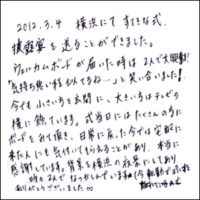 2012.3.4 横浜にてすてきな式、
披露宴を送ることができました。
ウェルカムボードが届いた時は2人で大興奮!
「気持ち悪い程似てるね…」と笑い合いました!
今でも小さい方を玄関に、大きい方はテレビの
横に飾ています。式当日にはたくさんの方に
ボードをみて頂き、日常に戻った今では宅配に
来た人にも気付いてもらえることがあり、本当に
感謝しています。背景を横浜の夜景にしており
時々みてなつかしんでいます
ありがとうございました